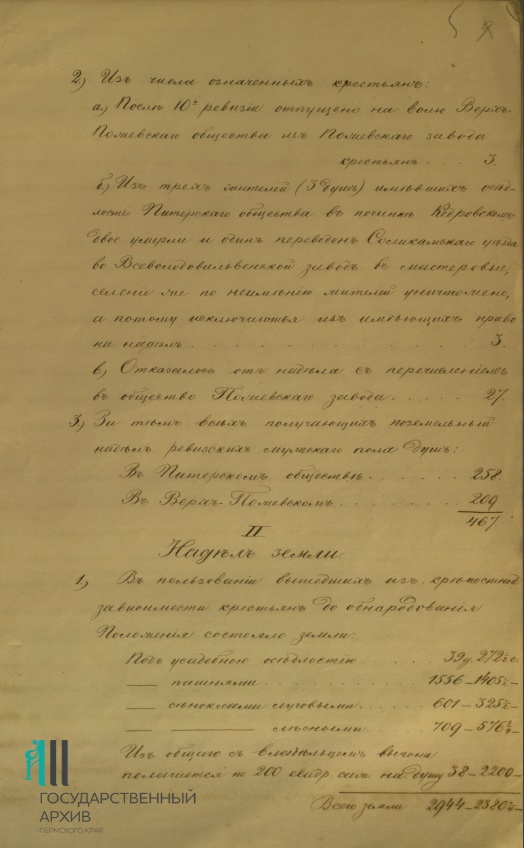 2) Изъ числа означенныхъ крестьянъ:
а) После 10й ревизіи отпущено на волю Верхъ-
Пожевскаго общества изъ Пожевскаго завода
крестьянъ . . . 3.
б) Изъ трехъ жителей (3 душъ) имѣвшихъ осѣд-
лость Питерскаго общества въ починкѣ Кедровскомъ
двое умерли и одинъ переведенъ Соликамскаго уѣзда
во Всеволодовильвенской заводъ въ мастеровые,
селеніе же по неимѣнію жителей уничтожено,
а потому исключаются изъ имѣющихъ право
на надѣлъ . . . . . . . . . . 3.
в) Отказалось отъ надѣла съ перечисленіемъ
въ общество Пожевскаго завода . . . . . 27.
3) За тѣмъ всѣхъ получающихъ поземельный
надѣлъ ревизскихъ мужескаго пола душъ:
Въ Питерскомъ обществѣ . . . . . 258.
Въ Верхъ-Пожевскомъ . . . . . 209
467.
II
Надѣлъ земли
1) Въ пользованіи вышедшихъ изъ крѣпостной
зависимости крестьянъ до обнародованія
Положенія состояло земли:
Подъ усадебною осѣдлостію . . . . 39 д. 272½ с.
— пашнями . . . . . . . 1556–1405½–
— сѣнокосами луговыми . . . . 601–325½–
— — лѣсными . . . . 709–576¾–
Изъ общаго съ владѣльцемъ выгона
полагается по 200 квадр. саж. на душу 38–2200–
Всего земли 2944–2380
ГОСУДАРСТВЕННЫЙ
АРХИВ
ПЕРМСКОГО КРАЯ